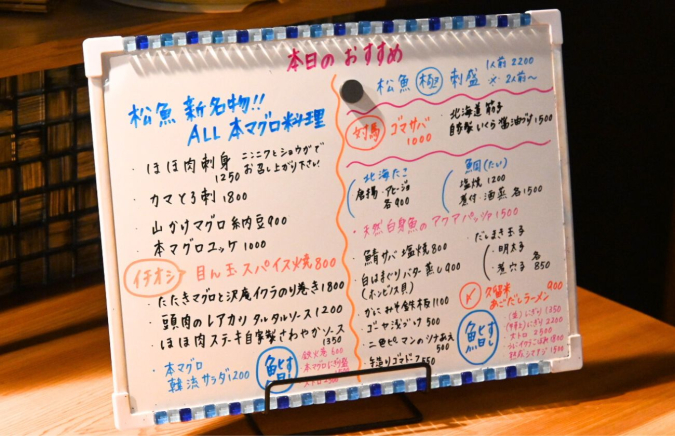 本日のおすすめ
松魚 新名物!!
ALL 本マグロ料理
・ほほ肉刺身 ニンニクとショウガで
1250 お召し上がり下さい
・カマとろ刺 1800
・山かけマグロ納豆 900
・本マグロユッケ 1000
イチオシ 目ん玉スパイス焼 800
・たたきマグロと沢庵イクラのり巻き 1800
・頭肉のレアカツ タルタルソース 1200
・ほほ肉ステーキ自家製さわやかソース
1350
・本マグロ
韓流サラダ 1200
鮨 すし
鉄火巻 600
松魚 極 刺盛
1人前 2200
2人前〜
対馬 ゴマサバ
1000
・北海道 筋子
自家製いくら醤油づけ 1500
北海たこ
唐揚・アヒージョ
各 900
鯛(たい)
塩焼 1200
煮付・酒蒸 各1500
・天然白身魚のアクアパッツァ 1500
・鯖サバ 塩焼 800
・白はまぐりバター蒸し 900
(ホンビス貝)
・かにみそ鉄板 1100
・ゴーヤ浅づけ 500
・二色ピーマンのツナあえ
500
・手造りゴマドーフ 550
・だしまき玉子
・明太子
・煮穴子
各 850
久留米 900
あごだしラーメン
鮨 すし